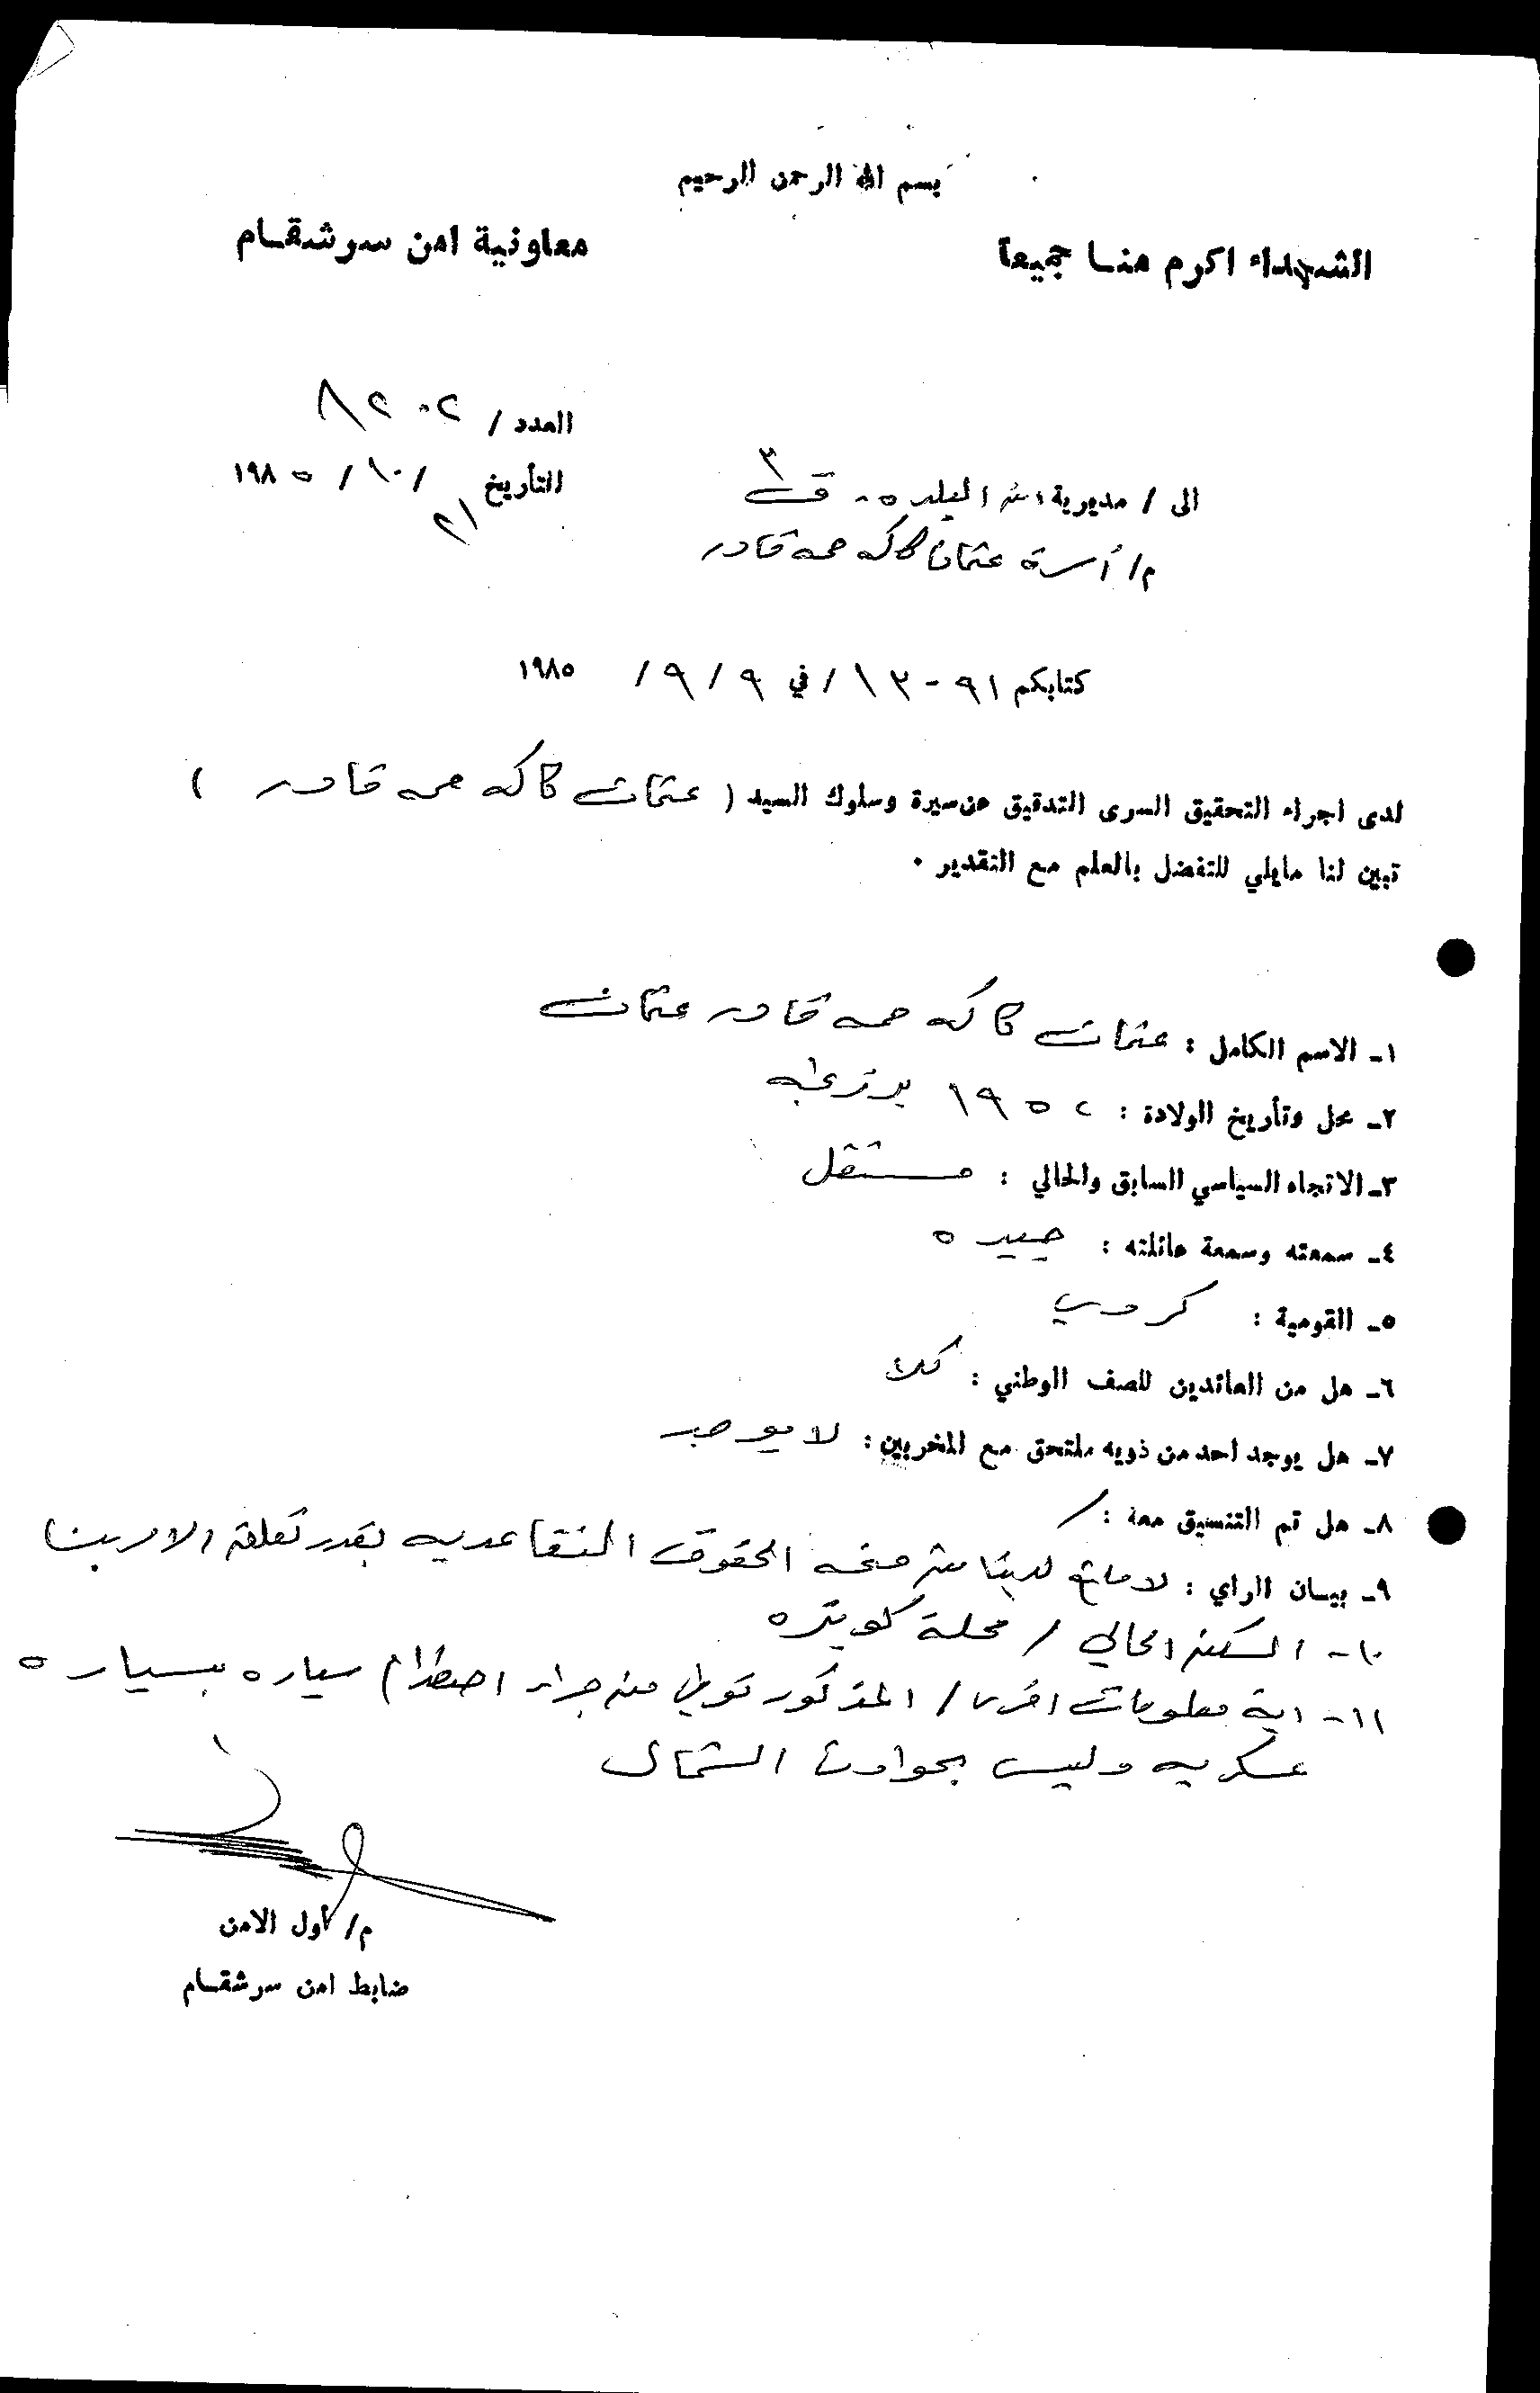 بسم الله الرحمن الرحيم
الشهداء اكرم منا جميعاً
معاونية امن سرشقام
العدد / ٨٢٠٢
التأريخ ٢١ / ١٠ / ١٩٨٥
الى / مديرية امن البلده - ق ٣
م/ أسرة عثمان كاكه حمه قادر
كتابكم ١٣٠٩١ / في ٩ / ٩ / ١٩٨٥
لدى اجراء التحقيق السري التدقيق عن سيرة وسلوك السيد ( عثمان كاكه حمه قادر )
تبين لنا مايلي للتفضل بالعلم مع التقدير .
١- الاسم الكامل : عثمان كاكه حمه قادر عثمان
٢- محل وتأريخ الولادة : ١٩٥٢
٣- الاتجاه السياسي السابق والحالي : مستقل
٤- سمعته وسمعة عائلته : جيده
٥- القومية : كردي
٦- هل من العائدين للصف الوطني : كلا
٧- هل يوجد احد من ذويه ملتحق مع المخربين : لا يوجد
٨- هل تم التنسيق معه : /
٩- بيان الراي : لا مانع لدينا من منحه الحقوق التقاعديه بقدر تعلق الامر بنا
١٠- السكن الحالي / محلة كويزه
١١- اية معلومات اخرى / المذكور توفي من جراء اصطدام سياره بسياره
عسكريه وليس بحوادث الشمال
م/ أول الامن
ضابط امن سرشقام